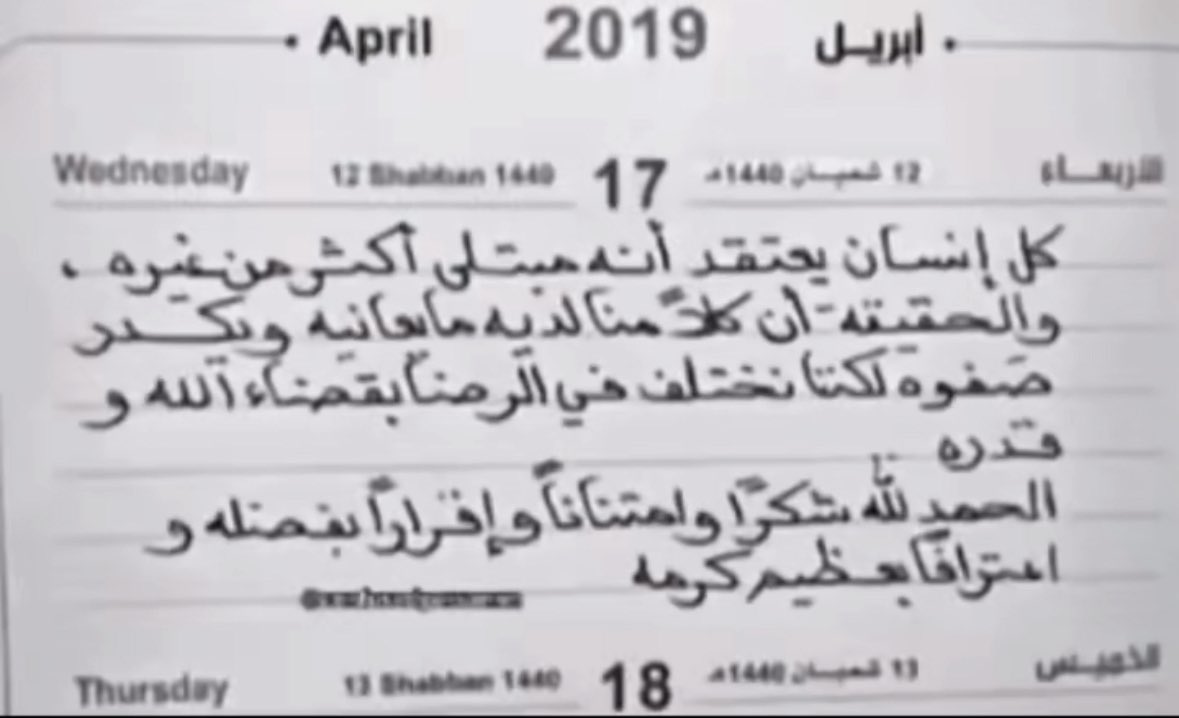 April 2019 أبريل
Wednesday 12 Shabban 1440 17 12 شعبان 1440هـ الأربعاء
كل إنسان يعتقد أنه مبتلى أكثر من غيره ،
والحقيقة أن كلاً منا لديه ما يعانيه ويكدر
صفوه لكننا نختلف في الرضا بقضاء الله و
قدره
الحمد لله شكرًا وامتناناً وإقراراً بفضله و
اعترافًا بعظيم كرمه
Thursday 13 Shabban 1440 18 13 شعبان 1440هـ الخميس